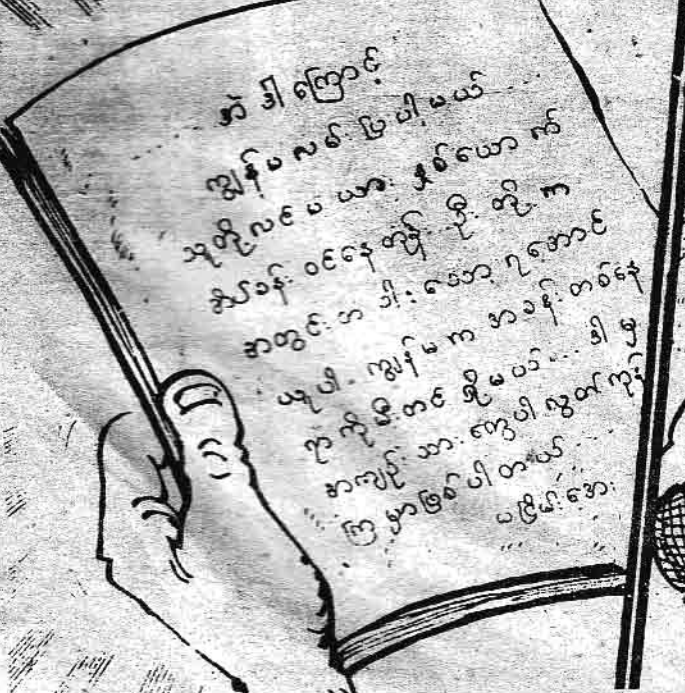 အဲဒါကြောင့်
ကျွန်မလမ်းပြပါ့မယ်....
သူတို့လင်မယား နှစ်ယောက်
အိပ်ခန်းဝင်နေတုန်း ဦးတို့က
အတွင်းဘဏ္ဍာ ရအောင်
ယူပါ. ကျွန်မက အခန်းတစ်နေ
ရာကိုမီးတင်ရှို့မယ်... ဒါမှ
အကျဉ်းသားတွေပါလွတ်ကုန်
ကြမှာဖြစ်ပါတယ်....
မငြိမ်းအေး